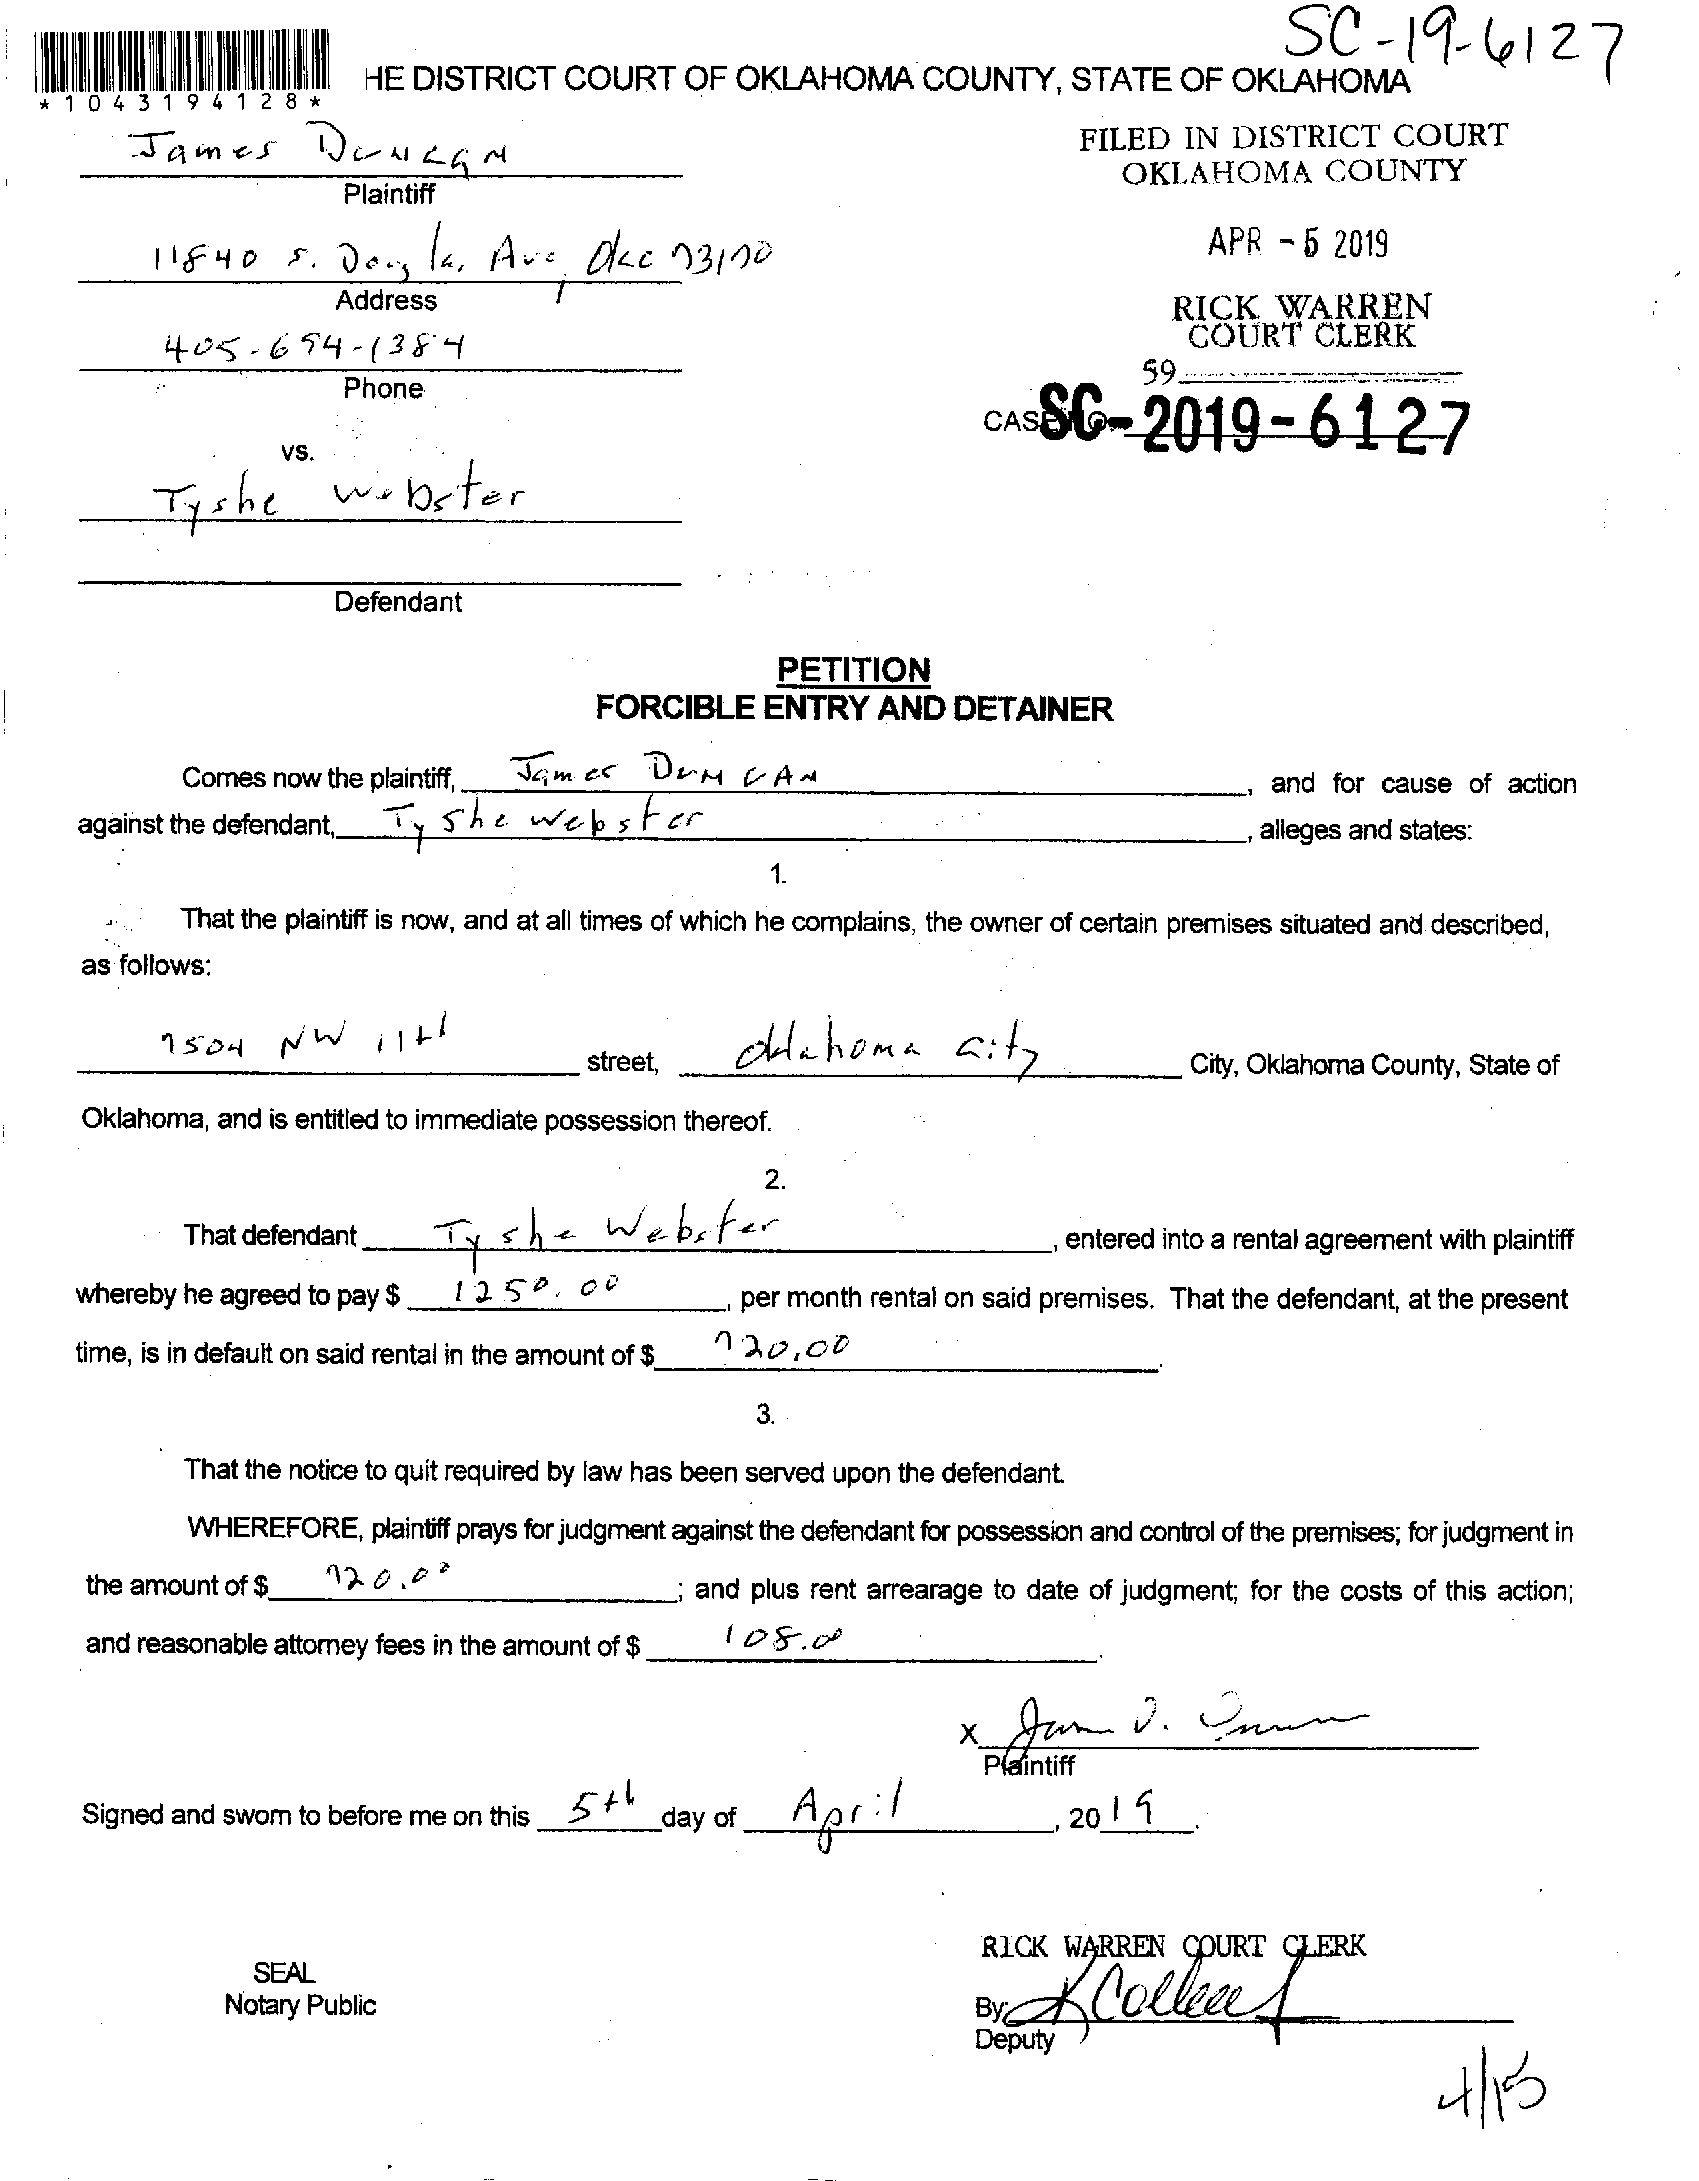 SC-19-6127
*1043194128*
HE DISTRICT COURT OF OKLAHOMA COUNTY, STATE OF OKLAHOMA
James Duncan
Plaintiff
FILED IN DISTRICT COURT
OKLAHOMA COUNTY
11840 S. Douglas Ave, Okc 73170
Address
APR - 5 2019
RICK WARREN
COURT CLERK
405-694-1384
Phone
59
CASE NO. SC-2019-6127
vs.
Tyshe Webster
Defendant
PETITION
FORCIBLE ENTRY AND DETAINER
Comes now the plaintiff, James DUNCAN, and for cause of action
against the defendant, Tyshe Webster, alleges and states:
1.
That the plaintiff is now, and at all times of which he complains, the owner of certain premises situated and described,
as follows:
7504 NW 11th street, Oklahoma City City, Oklahoma County, State of
Oklahoma, and is entitled to immediate possession thereof.
2.
That defendant Tyshe Webster, entered into a rental agreement with plaintiff
whereby he agreed to pay $ 1250.00, per month rental on said premises. That the defendant, at the present
time, is in default on said rental in the amount of $ 720.00.
3.
That the notice to quit required by law has been served upon the defendant.
WHEREFORE, plaintiff prays for judgment against the defendant for possession and control of the premises; for judgment in
the amount of $ 720.00; and plus rent arrearage to date of judgment; for the costs of this action;
and reasonable attorney fees in the amount of $ 108.00.
X
Plaintiff
Signed and sworn to before me on this 5th day of April, 2019.
RICK WARREN COURT CLERK
SEAL
Notary Public
By
Deputy
4/15